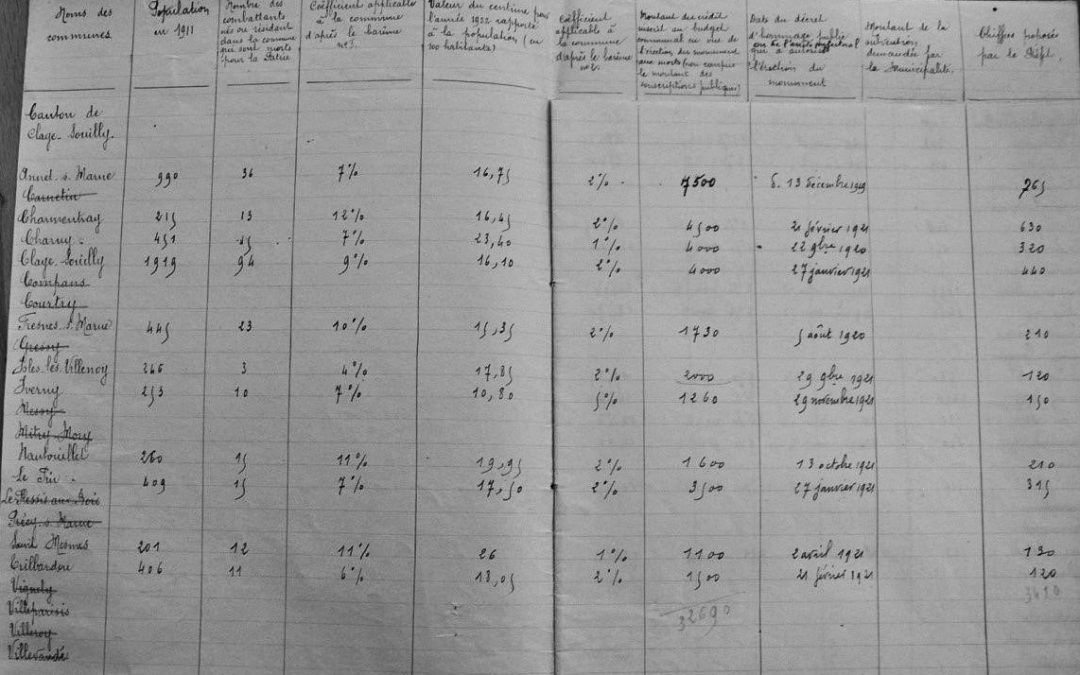 Noms des communes
Population en 1911
Nombre des combattants nés ou résidant dans la commune qui sont morts pour la Patrie
Coefficient applicable à la commune d'après le barème n° 1.
Valeur du centime pour l'année 1922 rapporté à la population (en 100 habitants)
Coefficient applicable à la commune d'après le barème n° 2.
Montant du crédit inscrit au budget communal en vue de l'érection du monument aux morts (non compris le montant des souscriptions publiques)
Date du décret d'hommage public ou de l'arrêté préfectoral qui a autorisé l'érection du monument
Montant de la subvention demandée par la Municipalité.
Chiffres proposés par le Préfet.
Canton de
Claye-Souilly.
Annet s. Marne 990 36 7% 16,75 2% 7500 d. 13 décembre 1919 765
Carnetin
Charmentray 215 13 12% 16,45 2% 4500 21 février 1921 630
Charny 451 25 7% 23,40 1% 4000 22 9bre 1920 320
Claye-Souilly 1919 94 9% 16,10 2% 4000 27 janvier 1921 440
Compans
Courtry
Fresnes s. Marne 445 23 10% 15,35 2% 1730 5 août 1920 210
Gressy
Isles-les-Villenoy 246 3 4% 17,85 2% 2000 29 9bre 1921 120
Iverny 253 10 7% 10,80 5% 1260 29 novembre 1921 150
Messy
Mitry-Mory
Nantouillet 260 15 11% 19,95 2% 1600 13 octobre 1921 210
Le Pin 409 15 7% 17,50 2% 3500 27 janvier 1921 315
Le Plessis aux Bois
Précy s. Marne
Saint Mesmes 201 12 11% 26 1% 1100 2 avril 1921 130
Trilbardou 406 11 6% 18,05 2% 1500 21 février 1921 120
Vignely 3420
Villeparisis 32690
Villeroy
Villevaudé